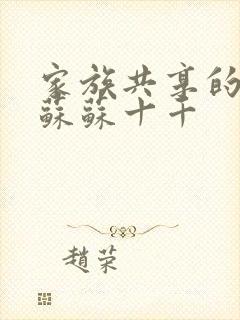 家族共享的
蘇蘇十十
趙荣